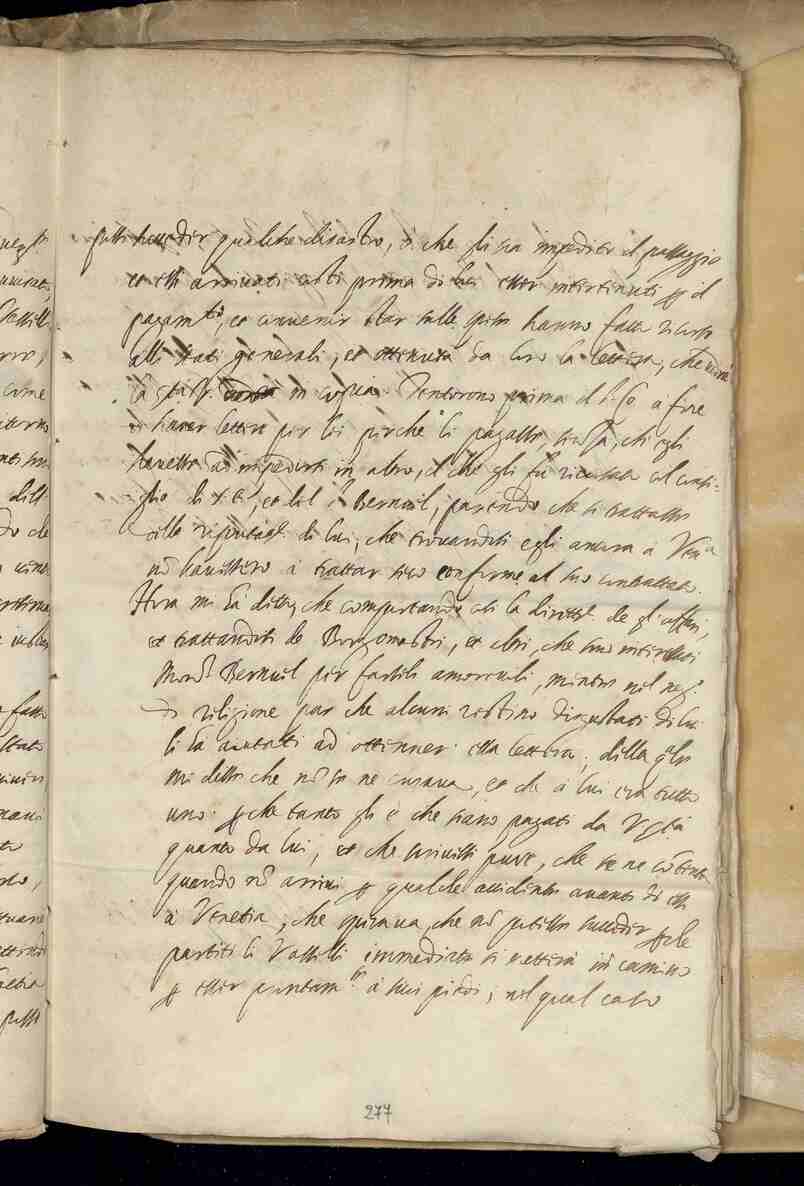 qualche disastro, ò che li sia impedito il passaggio
et essi arrivati costì prima di lui esser intertenuti per il
pagam.to, et convenir star sulle spese hanno fatto ricorso
alli stati generali, et ottenuta da loro la lettera, che
in copia. Tentorono prima il S. Co. a fare
lettere per lui perche li pagasse, ch'egli
havesse ad impedirsi in altro, il che gli fù ricusato col
di V. E., et del S. Bernvel, parendo che si trattasse
della di lui, che trovandosi egli ancora à Ven.a
nõ havessero à trattar seco conforme al suo contrattato.
Hora mi hà detto, che comportando così la de gl'affari,
et trattandosi de Borgomastri, et altri, che sono interessati
Mons.r Bernvel per farseli amorevoli, mentre nel neg.o
di religione par che alcuni restino disgustati di lui
li hà aiutati ad ottenner essa lettera, della q.le
mi disse che nõ se ne curava, et che à lui era tutto
uno per che tanto gli è che siano pagati da V. S.tà
quanto da lui, et che scrivessi pure, che se ne cõtenta
quando nõ arrivi per qualche accidente avanti di essi
à Venetia, che sperava, che nõ potesse succeder per che
partiti li Vasselli immediate si metterà in camino
per esser à suoi piedi, nel qual caso
277